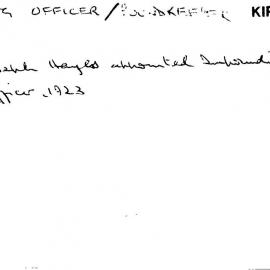 G OFFICER / POUNDKEEPER KIR
seph Hayes appointed Impounding
fficer, 1923